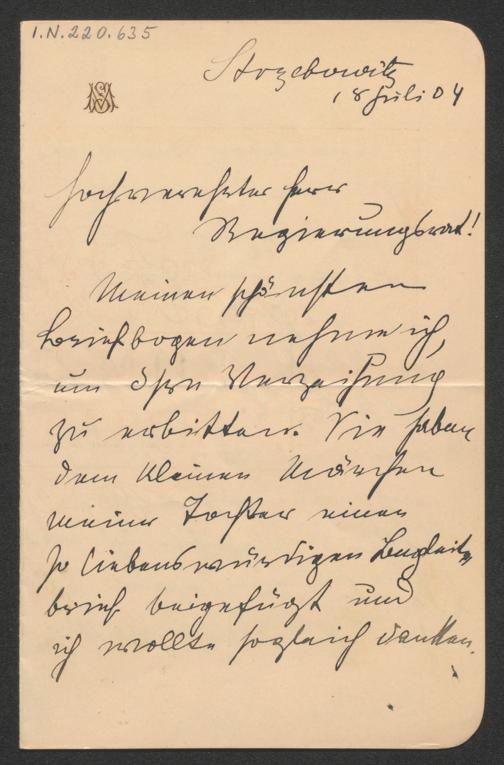 I.N.220.635
Strzebowitz
18 Juli 04
Hochverehrter Herr
Regierungsrat!
Meinen schönsten
Briefbogen nehme ich,
um Ihre Verzeihung
zu erbitten. Sie haben
dem kleinen Märchen
meiner Tochter einen
so liebenswürdigen Begleit-
brief beigefügt und
ich wollte sogleich danken.